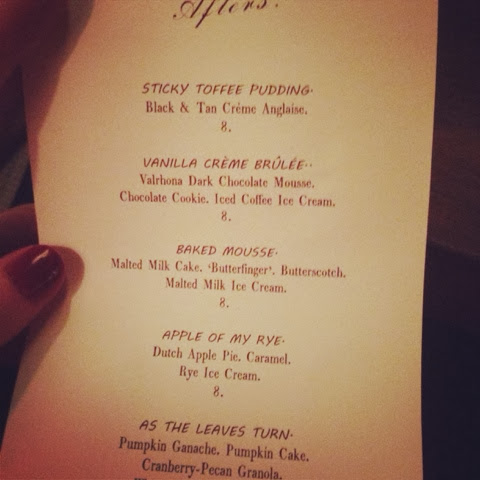 Afters.
STICKY TOFFEE PUDDING.
Black & Tan Crème Anglaise.
8.
VANILLA CRÈME BRÛLÉE..
Valrhona Dark Chocolate Mousse.
Chocolate Cookie. Iced Coffee Ice Cream.
8.
BAKED MOUSSE.
Malted Milk Cake. 'Butterfinger'. Butterscotch.
Malted Milk Ice Cream.
8.
APPLE OF MY RYE.
Dutch Apple Pie. Caramel.
Rye Ice Cream.
8.
AS THE LEAVES TURN.
Pumpkin Ganache. Pumpkin Cake.
Cranberry-Pecan Granola.